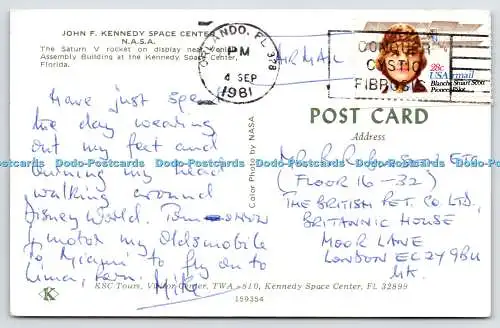 JOHN F. KENNEDY SPACE CENTER
N.A.S.A.
The Saturn V rocket on display near
Assembly Building at the Kennedy Space Center,
Florida.
ORLANDO, FL 328
PM
4 SEP
1981
AIRMAIL
CONQUER
CYSTIC
FIBROSIS
28c
USAirmail
Blanche Stuart Scott
Pioneer Pilot
POST CARD
Address
Have just spent
the day wearing
out my feet and
burning my head
walking around
Disney World.
motor my Oldsmobile
to Miami to fly on to
Lima, Peru. Mike
Color Photo by NASA
(FLOOR 16-32)
THE BRITISH PET. CO. LTD.,
BRITANNIC HOUSE
MOOR LANE
LONDON EC2Y 9BU
UK.
Dodo-Postcards Dodo-Postcards Dodo-Postcards Dodo-Postcards Dodo-Postcards
K
KSC Tours, Visitor Center, TWA-810, Kennedy Space Center, FL 32899
159354